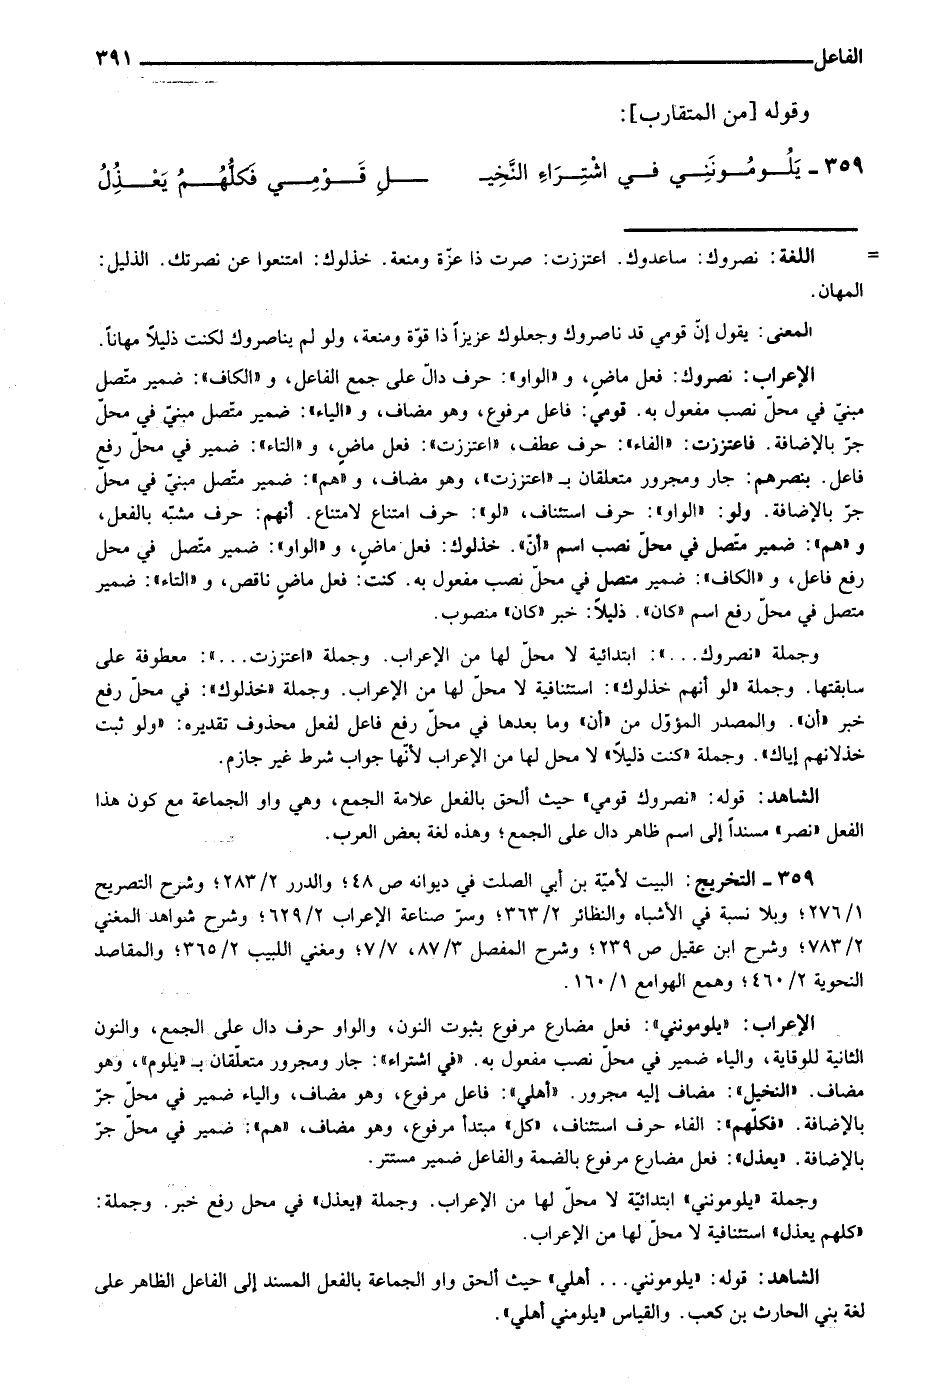 الفاعل ٣٩١
وقوله [من المتقارب]:
٣٥٩ ـ يَلُـومُـونَنِـي فـي اشْتِـرَاءِ النَّخِيـ ـلِ قَـوْمِـي فَكلُّهُـمُ يَعْـذِلُ
= اللغة: نصروك: ساعدوك. اعتززت: صرت ذا عزّة ومنعة. خذلوك: امتنعوا عن نصرتك. الذليل:
المهان.
المعنى: يقول إنّ قومي قد ناصروك وجعلوك عزيزاً ذا قوّة ومنعة، ولو لم يناصروك لكنت ذليلاً مهاناً.
الإعراب: نصروك: فعل ماضٍ، و «الواو»: حرف دالّ على جمع الفاعل، و «الكاف»: ضمير متّصل
مبنيّ في محلّ نصب مفعول به. قومي: فاعل مرفوع، وهو مضاف، و «الياء»: ضمير متّصل مبنيّ في محلّ
جرّ بالإضافة. فاعتززت: «الفاء»: حرف عطف، «اعتززت»: فعل ماضٍ، و «التاء»: ضمير في محلّ رفع
فاعل. بنصرهم: جار ومجرور متعلقان بـ «اعتززت»، وهو مضاف، و «هم»: ضمير متّصل مبنيّ في محلّ
جرّ بالإضافة. ولو: «الواو»: حرف استئناف، «لو»: حرف امتناع لامتناع. أنهم: حرف مشبّه بالفعل،
و «هم»: ضمير متّصل في محلّ نصب اسم «أنّ». خذلوك: فعل ماضٍ، و «الواو»: ضمير متّصل في محل
رفع فاعل، و «الكاف»: ضمير متصل في محلّ نصب مفعول به. كنت: فعل ماضٍ ناقص، و «التاء»: ضمير
متصل في محلّ رفع اسم «كان». ذليلاً: خبر «كان» منصوب.
وجملة «نصروك...»: ابتدائية لا محلّ لها من الإعراب. وجملة «اعتززت...»: معطوفة على
سابقتها. وجملة «لو أنهم خذلوك»: استئنافية لا محلّ لها من الإعراب. وجملة «خذلوك»: في محلّ رفع
خبر «أن». والمصدر المؤوّل من «أن» وما بعدها في محلّ رفع فاعل لفعل محذوف تقديره: «ولو ثبت
خذلانهم إياك». وجملة «كنت ذليلاً» لا محل لها من الإعراب لأنّها جواب شرط غير جازم.
الشاهد: قوله: «نصروك قومي» حيث ألحق بالفعل علامة الجمع، وهي واو الجماعة مع كون هذا
الفعل «نصر» مسنداً إلى اسم ظاهر دال على الجمع؛ وهذه لغة بعض العرب.
٣٥٩ ـ التخريج: البيت لأميّة بن أبي الصلت في ديوانه ص ٤٨؛ والدرر ٢/٢٨٣؛ وشرح التصريح
١/٢٧٦؛ وبلا نسبة في الأشباه والنظائر ٢/٣٦٣؛ وسرّ صناعة الإعراب ٢/٦٢٩؛ وشرح شواهد المغني
٢/٧٨٣؛ وشرح ابن عقيل ص ٢٣٩؛ وشرح المفصل ٣/٨٧، ٧/٧؛ ومغني اللبيب ٢/٣٦٥؛ والمقاصد
النحوية ٢/٤٦٠؛ وهمع الهوامع ١/١٦٠.
الإعراب: «يلومونني»: فعل مضارع مرفوع بثبوت النون، والواو حرف دال على الجمع، والنون
الثانية للوقاية، والياء ضمير في محلّ نصب مفعول به. «في اشتراء»: جار ومجرور متعلّقان بـ «يلوم»، وهو
مضاف. «النخيل»: مضاف إليه مجرور. «أهلي»: فاعل مرفوع، وهو مضاف، والياء ضمير في محلّ جرّ
بالإضافة. «فكلّهم»: الفاء حرف استئناف، «كل» مبتدأ مرفوع، وهو مضاف، «هم»: ضمير في محلّ جرّ
بالإضافة. «يعذل»: فعل مضارع مرفوع بالضمة والفاعل ضمير مستتر.
وجملة «يلومونني» ابتدائيّة لا محلّ لها من الإعراب. وجملة «يعذل» في محل رفع خبر. وجملة:
«كلهم يعذل» استئنافية لا محلّ لها من الإعراب.
الشاهد: قوله: «يلومونني... أهلي» حيث ألحق واو الجماعة بالفعل المسند إلى الفاعل الظاهر على
لغة بني الحارث بن كعب. والقياس «يلومني أهلي».